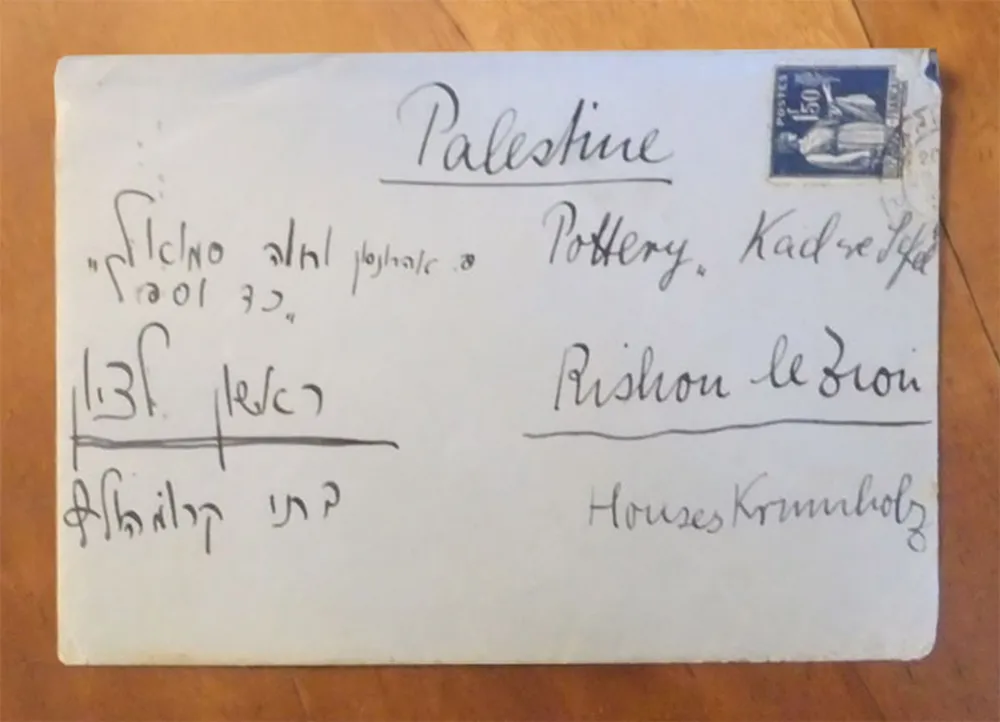 Palestine
POSTES
1f50
פ. אהרונסון וחוה סמואל
"כד וספל"
Pottery „Kad we Sefel
ראשון לציון
Rishon le Zion
בתי קרומהולץ
Houses Krumholz